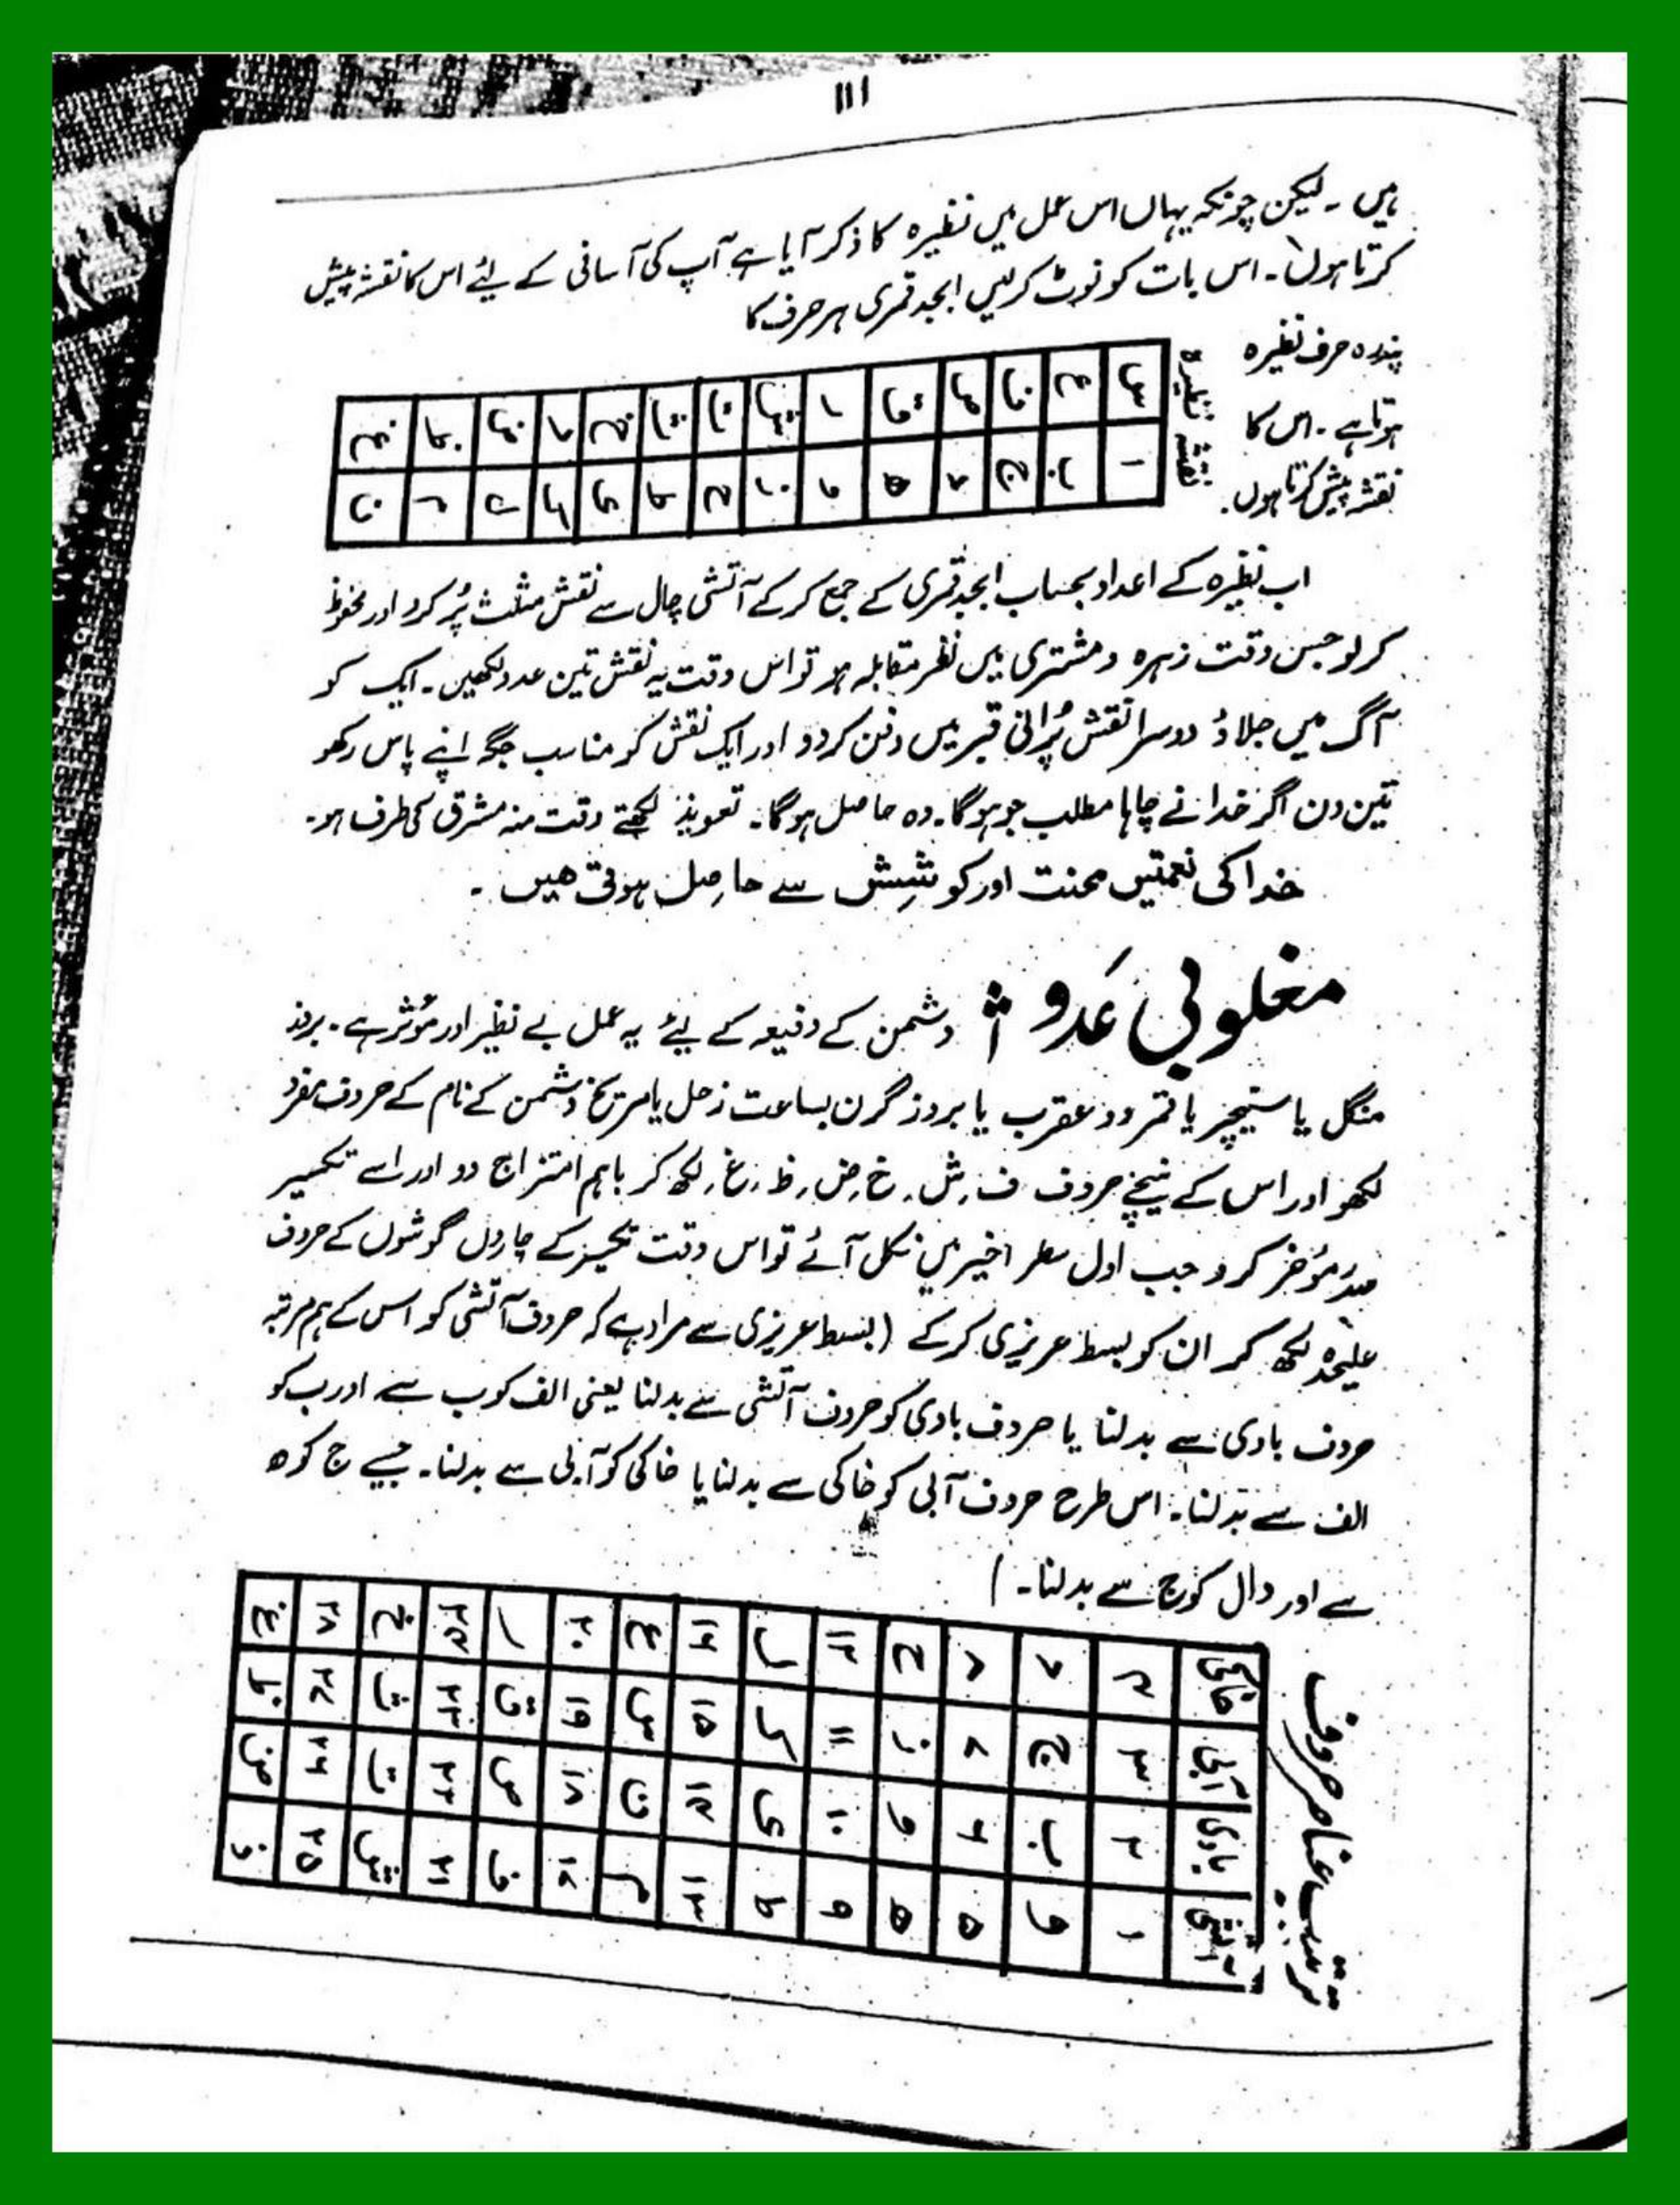 ۱۱۱
ہیں ۔ لیکن چونکہ یہاں اس عمل میں نظیرہ کا ذکر آیا ہے آپ کی آسانی کے لیئے اس کا نقشہ پیش
کرتا ہوں ۔ اس بات کو نوٹ کر لیں ابجد قمری ہر حرف کا
پندرہ حرف نظیرہ
ہوتا ہے ۔ اس کا
نقشہ پیش کرتا ہوں ۔
نقشہ نظیرہ
س ع ف ص ق ر ش ت ث خ ذ ض ظ غ
ا ب ج د ھ و ز ح ط ی ک ل م ن
اب نظیرہ کے اعداد بحساب ابجد قمری کے جمع کر کے آتشی چال سے نقش مثلث پُر کرو اور محفوظ
کر لو جس وقت زہرہ و مشتری میں نظر مقابلہ ہو تو اس وقت یہ نقش تین عدد لکھیں ۔ ایک کو
آگ میں جلاؤ دوسرا نقش پُرانی قبر میں دفن کر دو اور ایک نقش کو مناسب جگہ اپنے پاس رکھو
تین دن اگر خدا نے چاہا مطلب جو ہوگا ۔ وہ حاصل ہوگا ۔ تعویذ لکھتے وقت منہ مشرق کی طرف ہو ۔
خدا کی نعمتیں محنت اور کوشِش سے حاصِل ہوتی ھیں ۔
مغلوبی عَدو دشمن کے دفیعہ کے لیئے یہ عمل بے نظیر اور مؤثر ہے ۔ بروز
منگل یا سنیچر یا قمر در عقرب یا بروز گرن بساعت زحل یا مریخ دشمن کے نام کے حروف مفرد
لکھو اور اس کے نیچے حروف ف ، ش ، خ ، ض ، ظ ، غ ، لکھ کر باہم امتزاج دو اور اسے تکسیر
صدر مؤخر کرو جب اول سطر اخیر میں نکل آئے تو اس وقت تکسیر کے چاروں گوشوں کے حروف
علیحدہ لکھ کر ان کو بسط عریزی کر کے ( بسط عریزی سے مراد ہے کہ حروف آتشی کو اس کے ہم مرتبہ
حروف بادی سے بدلنا یا حروف بادی کو حروف آتشی سے بدلنا یعنی الف کو ب سے اور ب کو
الف سے بدلنا ۔ اس طرح حروف آبی کو خاکی سے بدلنا یا خاکی کو آبی سے بدلنا ۔ جیسے ج کو ھ
سے اور دال کو ج سے بدلنا ۔ )
ترتیب عناصر حروف
خاکی ۴ د ۸ ح ۱۲ ل ۱۶ ع ۲۰ ر ۲۴ خ ۲۸ غ
آبی ۳ ج ۷ ز ۱۱ ک ۱۵ س ۱۹ ق ۲۳ ث ۲۷ ظ
بادی ۲ ب ۶ و ۱۰ ی ۱۴ ن ۱۸ ص ۲۲ ت ۲۶ ض
آتشی ۱ و ۵ ھ ۹ ط ۱۳ م ۱۷ ف ۲۱ ش ۲۵ ذ